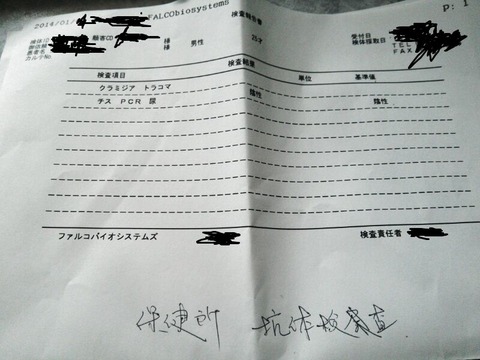 2014/01/ FALCObiosystems 検査報告書 P: 1
検体ID 顧客CD 様 男性 25才 受付日
患者名 様 検体採取日
カルテNo. TEL
FAX
検査結果
検査項目 単位 基準値
クラミジア トラコマ 陰性
チス PCR 尿 陰性
ファルコバイオシステムズ 検査責任者
保健所 抗体検査